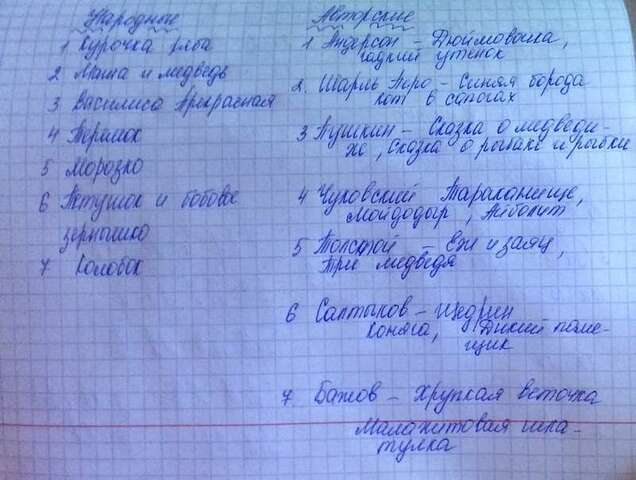 Народные
1 Курочка ряба
2 Маша и медведь
3 Василиса Прекрасная
4 Теремок
5 Морозко
6 Петушок и бобовое
зернышко
7 Колобок
Авторские
1 Андерсон – Дюймовочка,
гадкий утёнок
2. Шарль Перо – Синяя борода
кот в сапогах
3 Пушкин – Сказка о медведи-
хе, сказка о рыбаке и рыбке
4 Чуковский Тараканище,
Мойдодыр, Айболит
5 Толстой – Еж и заяц,
Три медведя
6 Салтыков – Щедрин
Коняга, Дикий поме-
щик
7 Бажов – Хрупкая веточка
Малахитовая шка-
тулка